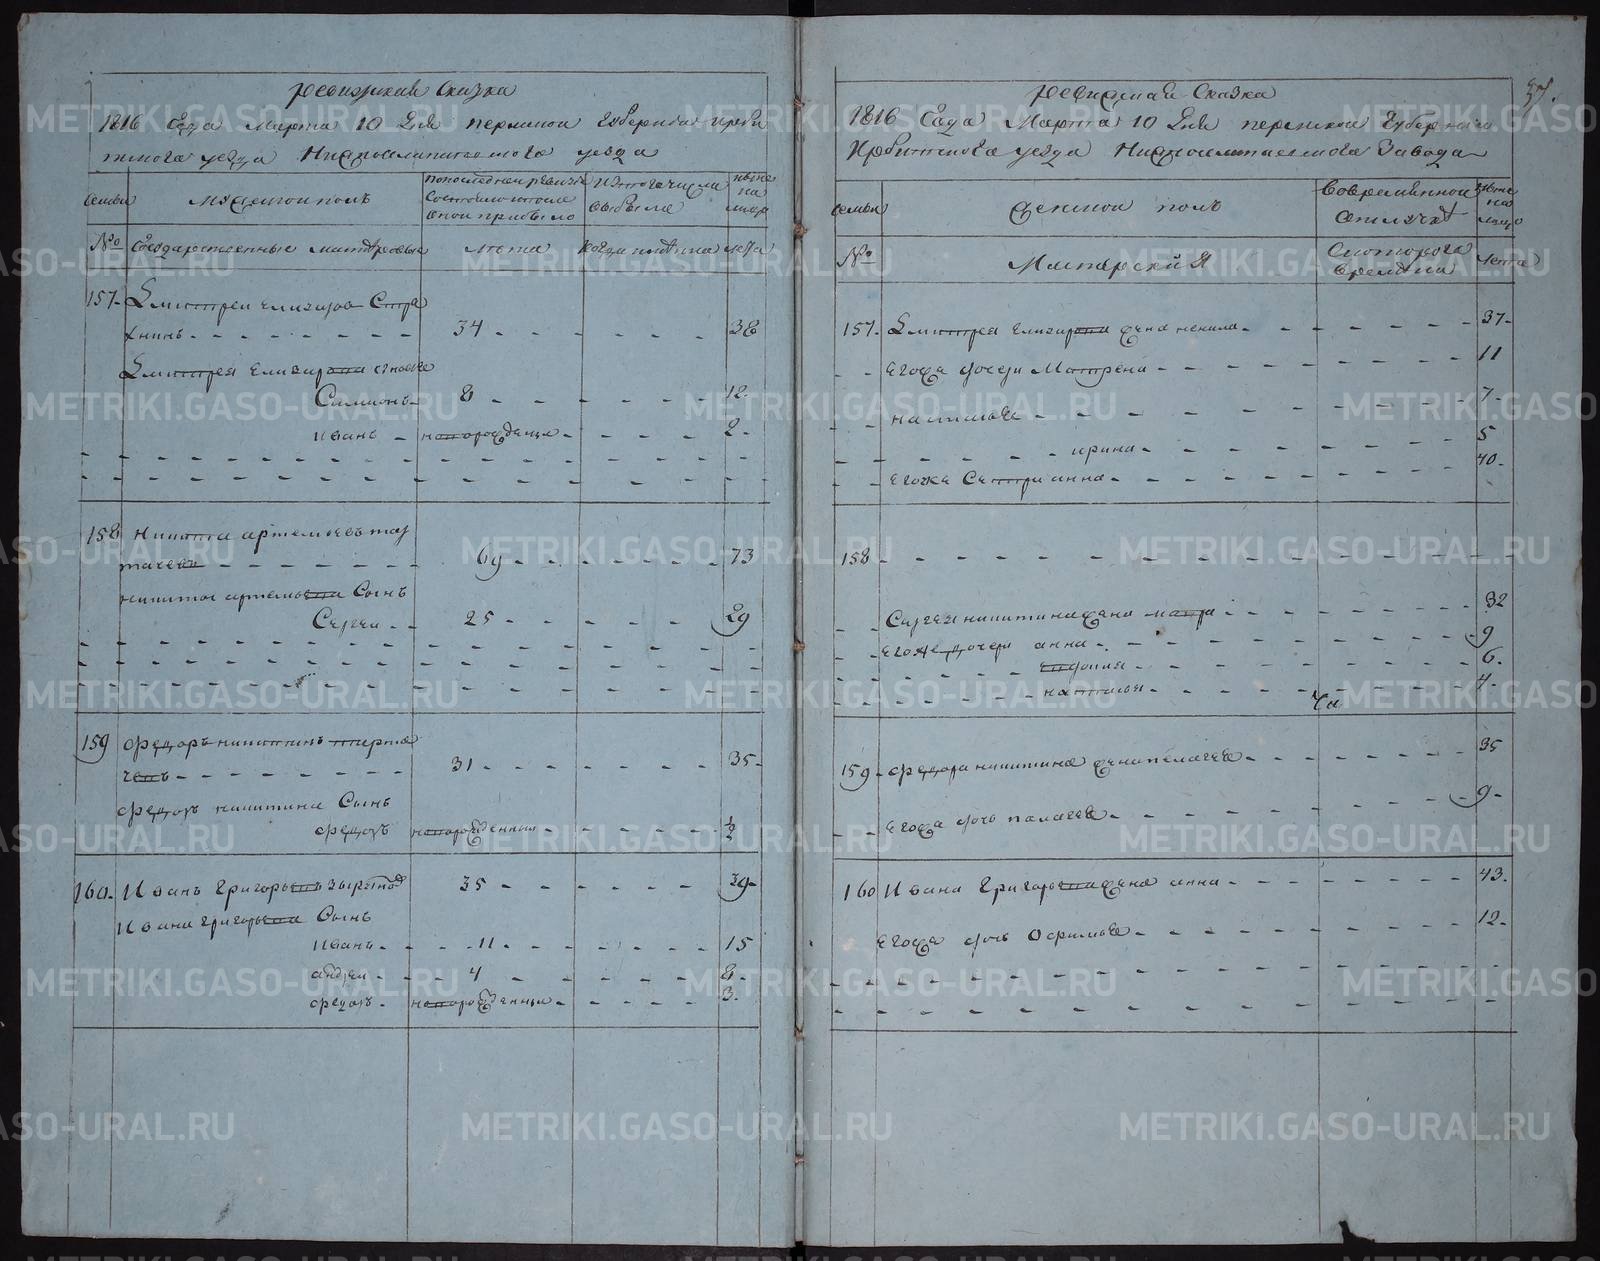 ревизская Сказка
1816 Года Марта 10 Дня пермской Губернии ирби
тского уезда уезда
семьи
мужеской полъ
по последней ревизии
состояло и после
оной прибыло
изтого числа
выбыло
ныне
на
лицо
№
Государственные мастеровые
лета
когда имянно
лета
157
Дмитрей елизаров
34 38
Дмитрея Елизарова сыновья
Симионъ 8 12
иванъ новорожденъ 2
158 Никита артемьевъ
69 73
никиты артемьева Сынъ
Сергеи 25 29
159 федоръ никитинъ
31 35
федора никитина Сынъ
федоръ новорожденныи ½
160 Иванъ Григорьевъ
35 39
Ивана григорьева Сынъ
иванъ 11 15
андреи 4 8
федоръ новорожденныи 3
ревизская Сказка
37.
1816 Года Марта 10 Дня пермской Губернии
Ирбитского уезда Завода
семьи
женской полъ
Вовременной
отлучке
ныне
на
лицо
№
Мастерския
Скоторого
времени
лета
157 Дмитрея Елизарова жена ненила 37
Егожа дочери Матрена 11
наталья 7
ирина 5
егоже Сестра анна 40
158
Сергея никитина жена мавра 32
егоже дочери анна 9
евдокия 6
наталья 4
159 федора никитина жена пелагея 35
Егожа дочь палагея 9
160 Ивана Григорьева жена анна 43
Егожа дочь Офимья 12
METRIKI.GASO-URAL.RU